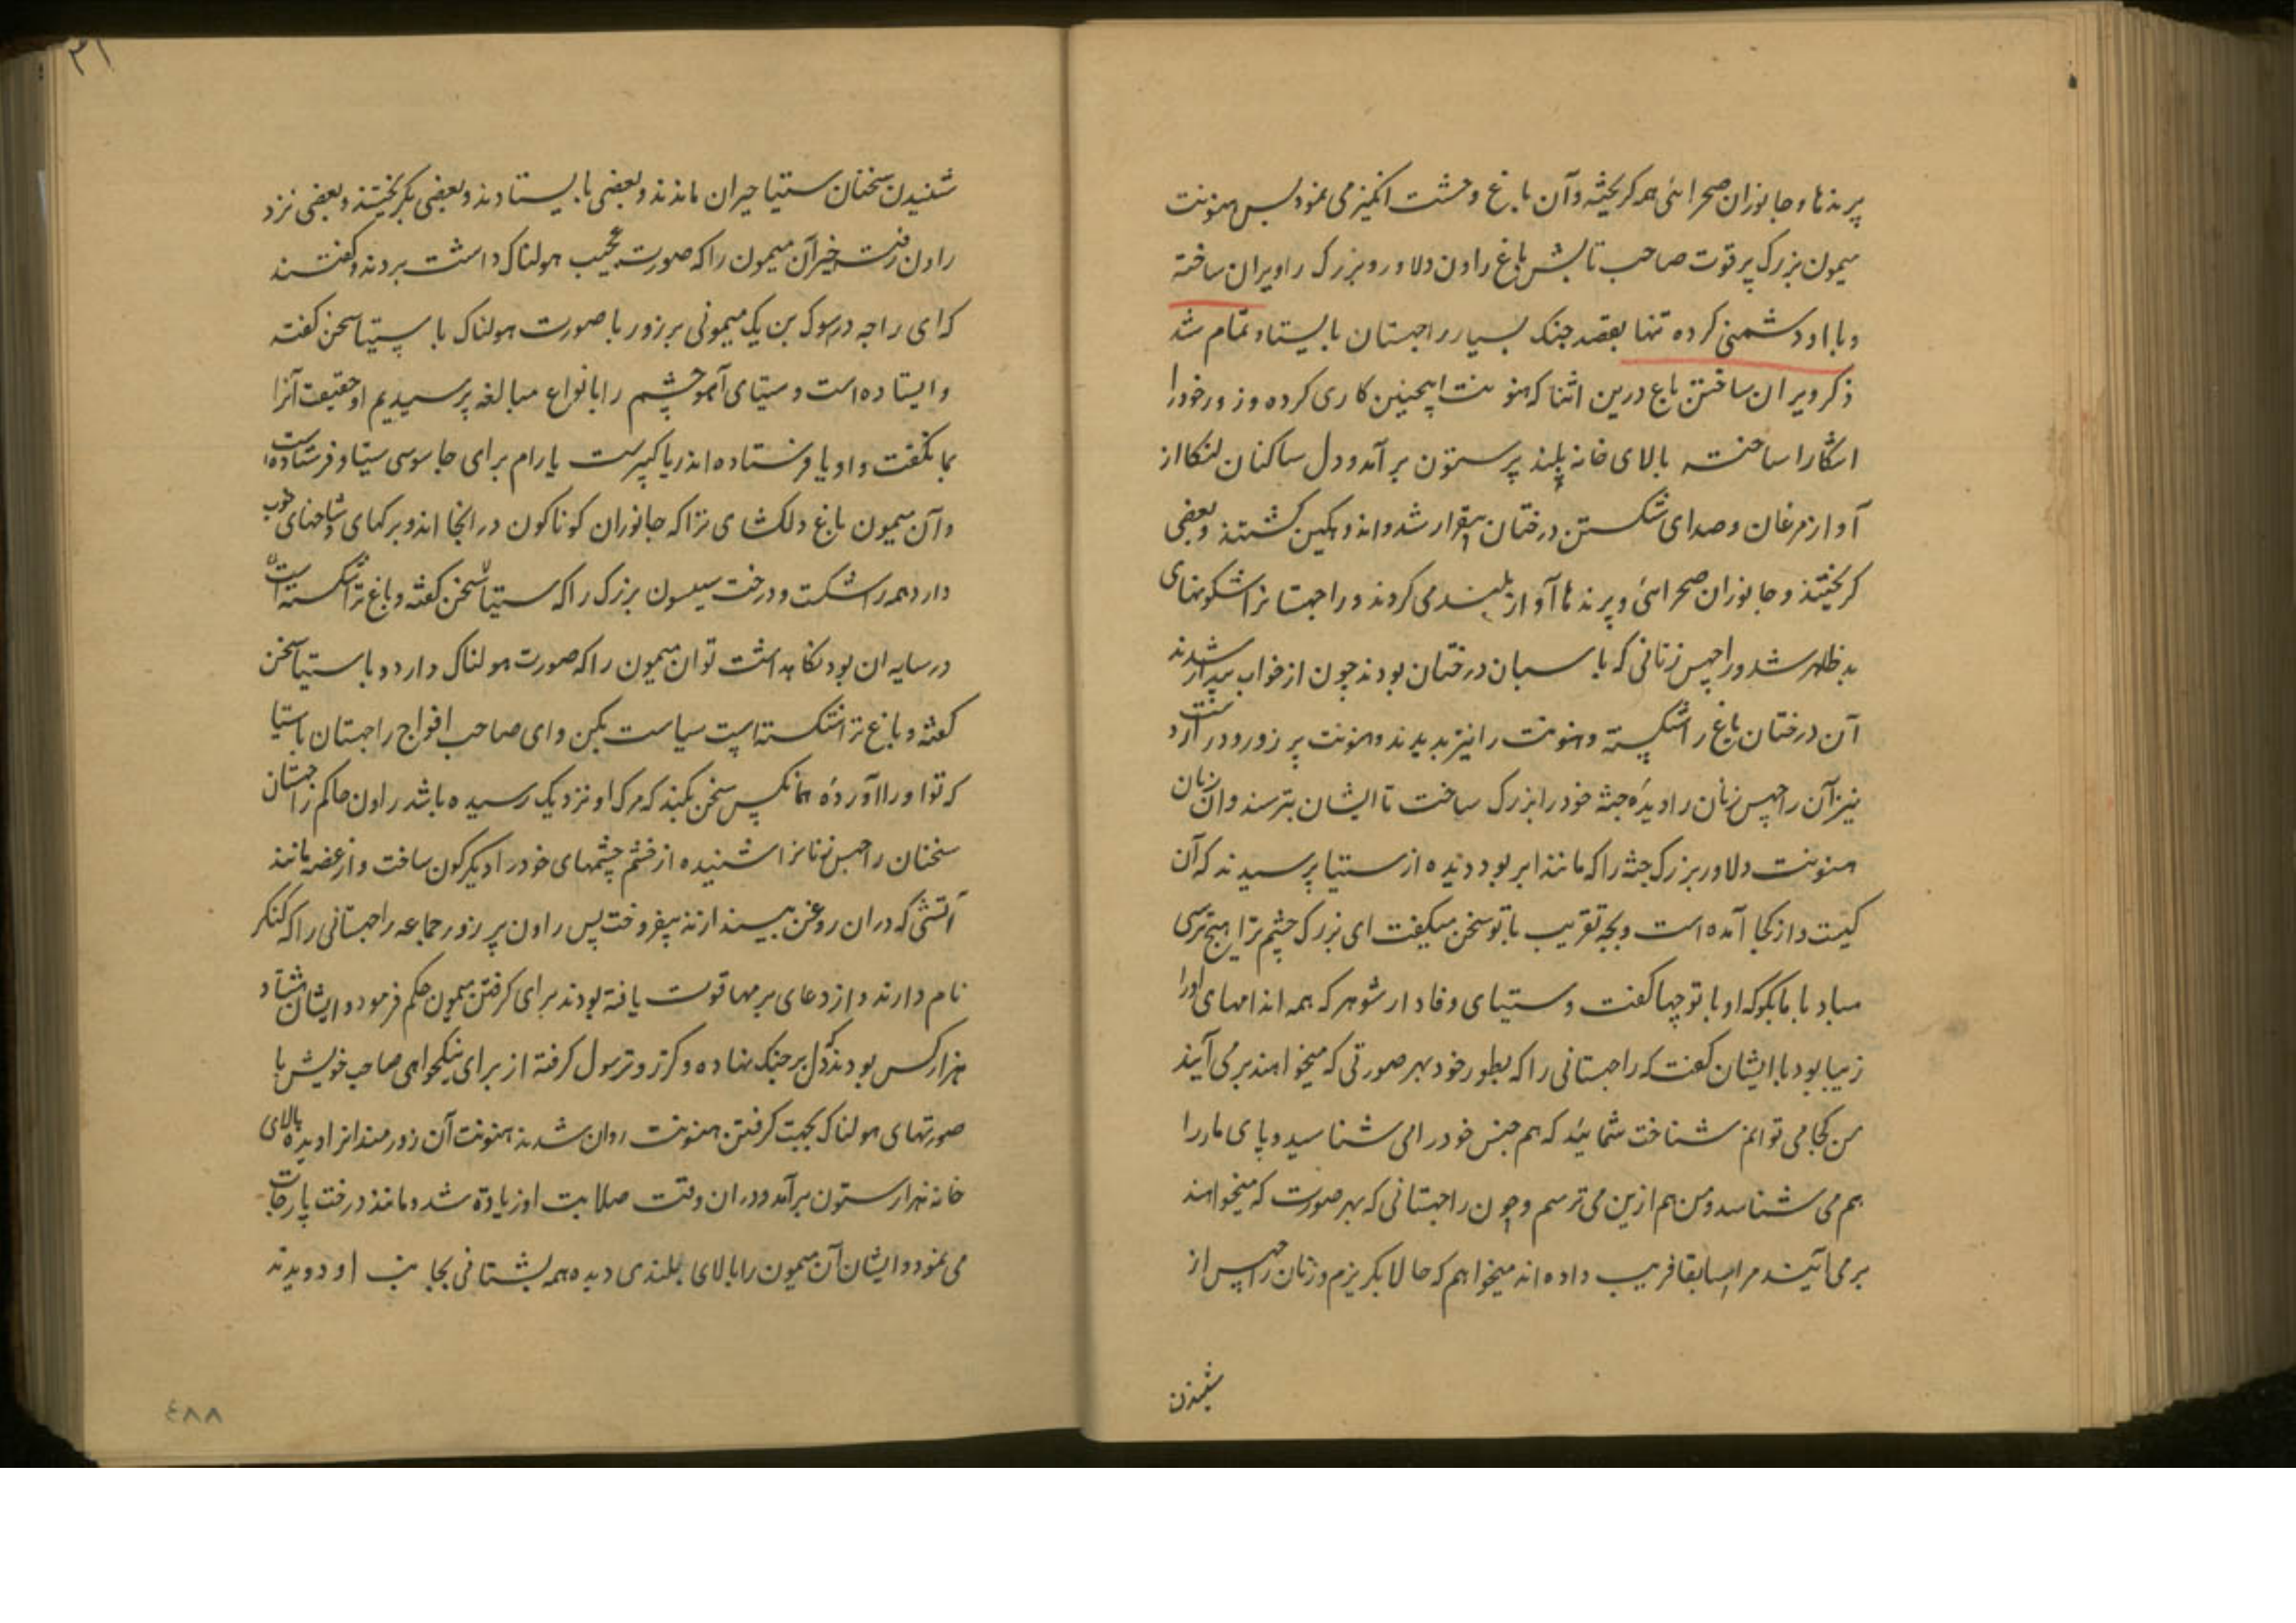 پرندها و جانوران صحرائی همه کریخته و آن باغ وحشت انکیز می نمود پس هنونت
میمون بزرک پر قوت صاحب تابش باغ راون دلاور و بزرک را ویران ساخته
و با او دشمنی کرده تنها بقصد جنک بسیار راجهستان بایستاد تمام شد
ذکر ویران ساختن باغ درین اثنا که هنونت اینچنین کاری کرده و زور خود را
اشکارا ساخته بالای خانه بلند پر ستون برآمد و دل ساکنان لنکا از
آواز مرغان و صدای شکستن درختان بیقرار شد و اندوهکین کشتند و بعضی
کریختند و جانوران صحرائی و پرندها آواز بلند می کردند و راجهسانرا شکونهای
بد ظاهر شد و راجهس زنانی که پاسبان درختان بودند چون از خواب بیدار شدند
آن درختان باغ را شکسته و هنونت را نیز بدیدند و هنونت پر زور و درازدست
نیز آن راجهس زنان را دیده جثه خود را بزرک ساخت تا ایشان بترسند و آن زنان
هنونت دلاور بزرک جثه را که مانند ابر بود دیده از ستیا پرسیدند که آن
کیست و از کجا آمده است و بچه تقریب با تو سخن میکفت ای بزرک چشم ترا هیچ ترسی
مباد با ما بکو که او با تو چها کفت و ستیای وفادار شوهر که همه اندامهای اورا
زیبا بود با ایشان کفت که راجهستانی را که بطور خود بهر صورتی که میخواهند بر می آیند
من کجا می توانم شناخت شمائید که هم جنس خود را می شناسید و پای مار را
هم می شناسد و من هم ازین می ترسم و چون راجهستانی که بهر صورت که میخواهند
بر می آیند مرا سابقا فریب داده اند میخواهم که حالا بکریزم و زنان راجهس از
شنیدن
۳۱
شنیدن سخنان ستیا حیران ماندند و بعضی بایستادند و بعضی بکریختند و بعضی نزد
راون رفته خبر آن میمون را که صورت عجیب هولناک داشت بردند و کفتند
که ای راجه در سوک بن یک میمونی پر زور با صورت هولناک با سیتا سخن کفته
و ایستاده است و سیتای آهو چشم را بانواع مبالغه پرسیدیم او حقیقت آنرا
بما نکفت و او یا فرستاده اندر یا کبیرست یا رام برای جاسوسی سیتا فرستاده است
و آن میمون باغ دلکشای ترا که جانوران کوناکون در انجا اند و برکهای و شاخهای خوب
دارد همه را شکست و درخت سیسون بزرک را که ستیا سخن کفته و باغ ترا شکسته است
در سایه ان بود نکاهداشت تو ان میمون را که صورت هولناک دارد و با ستیا سخن
کفته و باغ ترا شکسته است سیاست بکن و ای صاحب افواج راجهستان با ستیا
که تو او را آورده همانکس سخن بکند که مرک او نزدیک رسیده باشد راون حاکم راجهستان
سخنان راجهس زنانرا شنیده از خشم چشمهای خود را دیکرکون ساخت و از غصه مانند
آتشی که در ان روغن بیندازند بیفروخت پس راون پر زور جماعه راجهستانی را که کنکر
نام دارند و از دعای برمها قوت یافته بودند برای کرفتن میمون حکم فرمود و ایشان هشتاد
هزار کس بودند که دل بر جنک نهاده و کرز و ترسول کرفته از برای نیکخواهی صاحب خویش با
صورتهای هولناک بجهت کرفتن هنونت روان شدند هنونت آن زورمندانرا دیده بالای
خانه هزار ستون برآمد و در ان وقت صلابت او زیاده شد و مانند درخت پارجات
می نمود و ایشان آن میمون را بالای بلندی دیده همه بشتافی بجانب او دویدند
٤٨٨